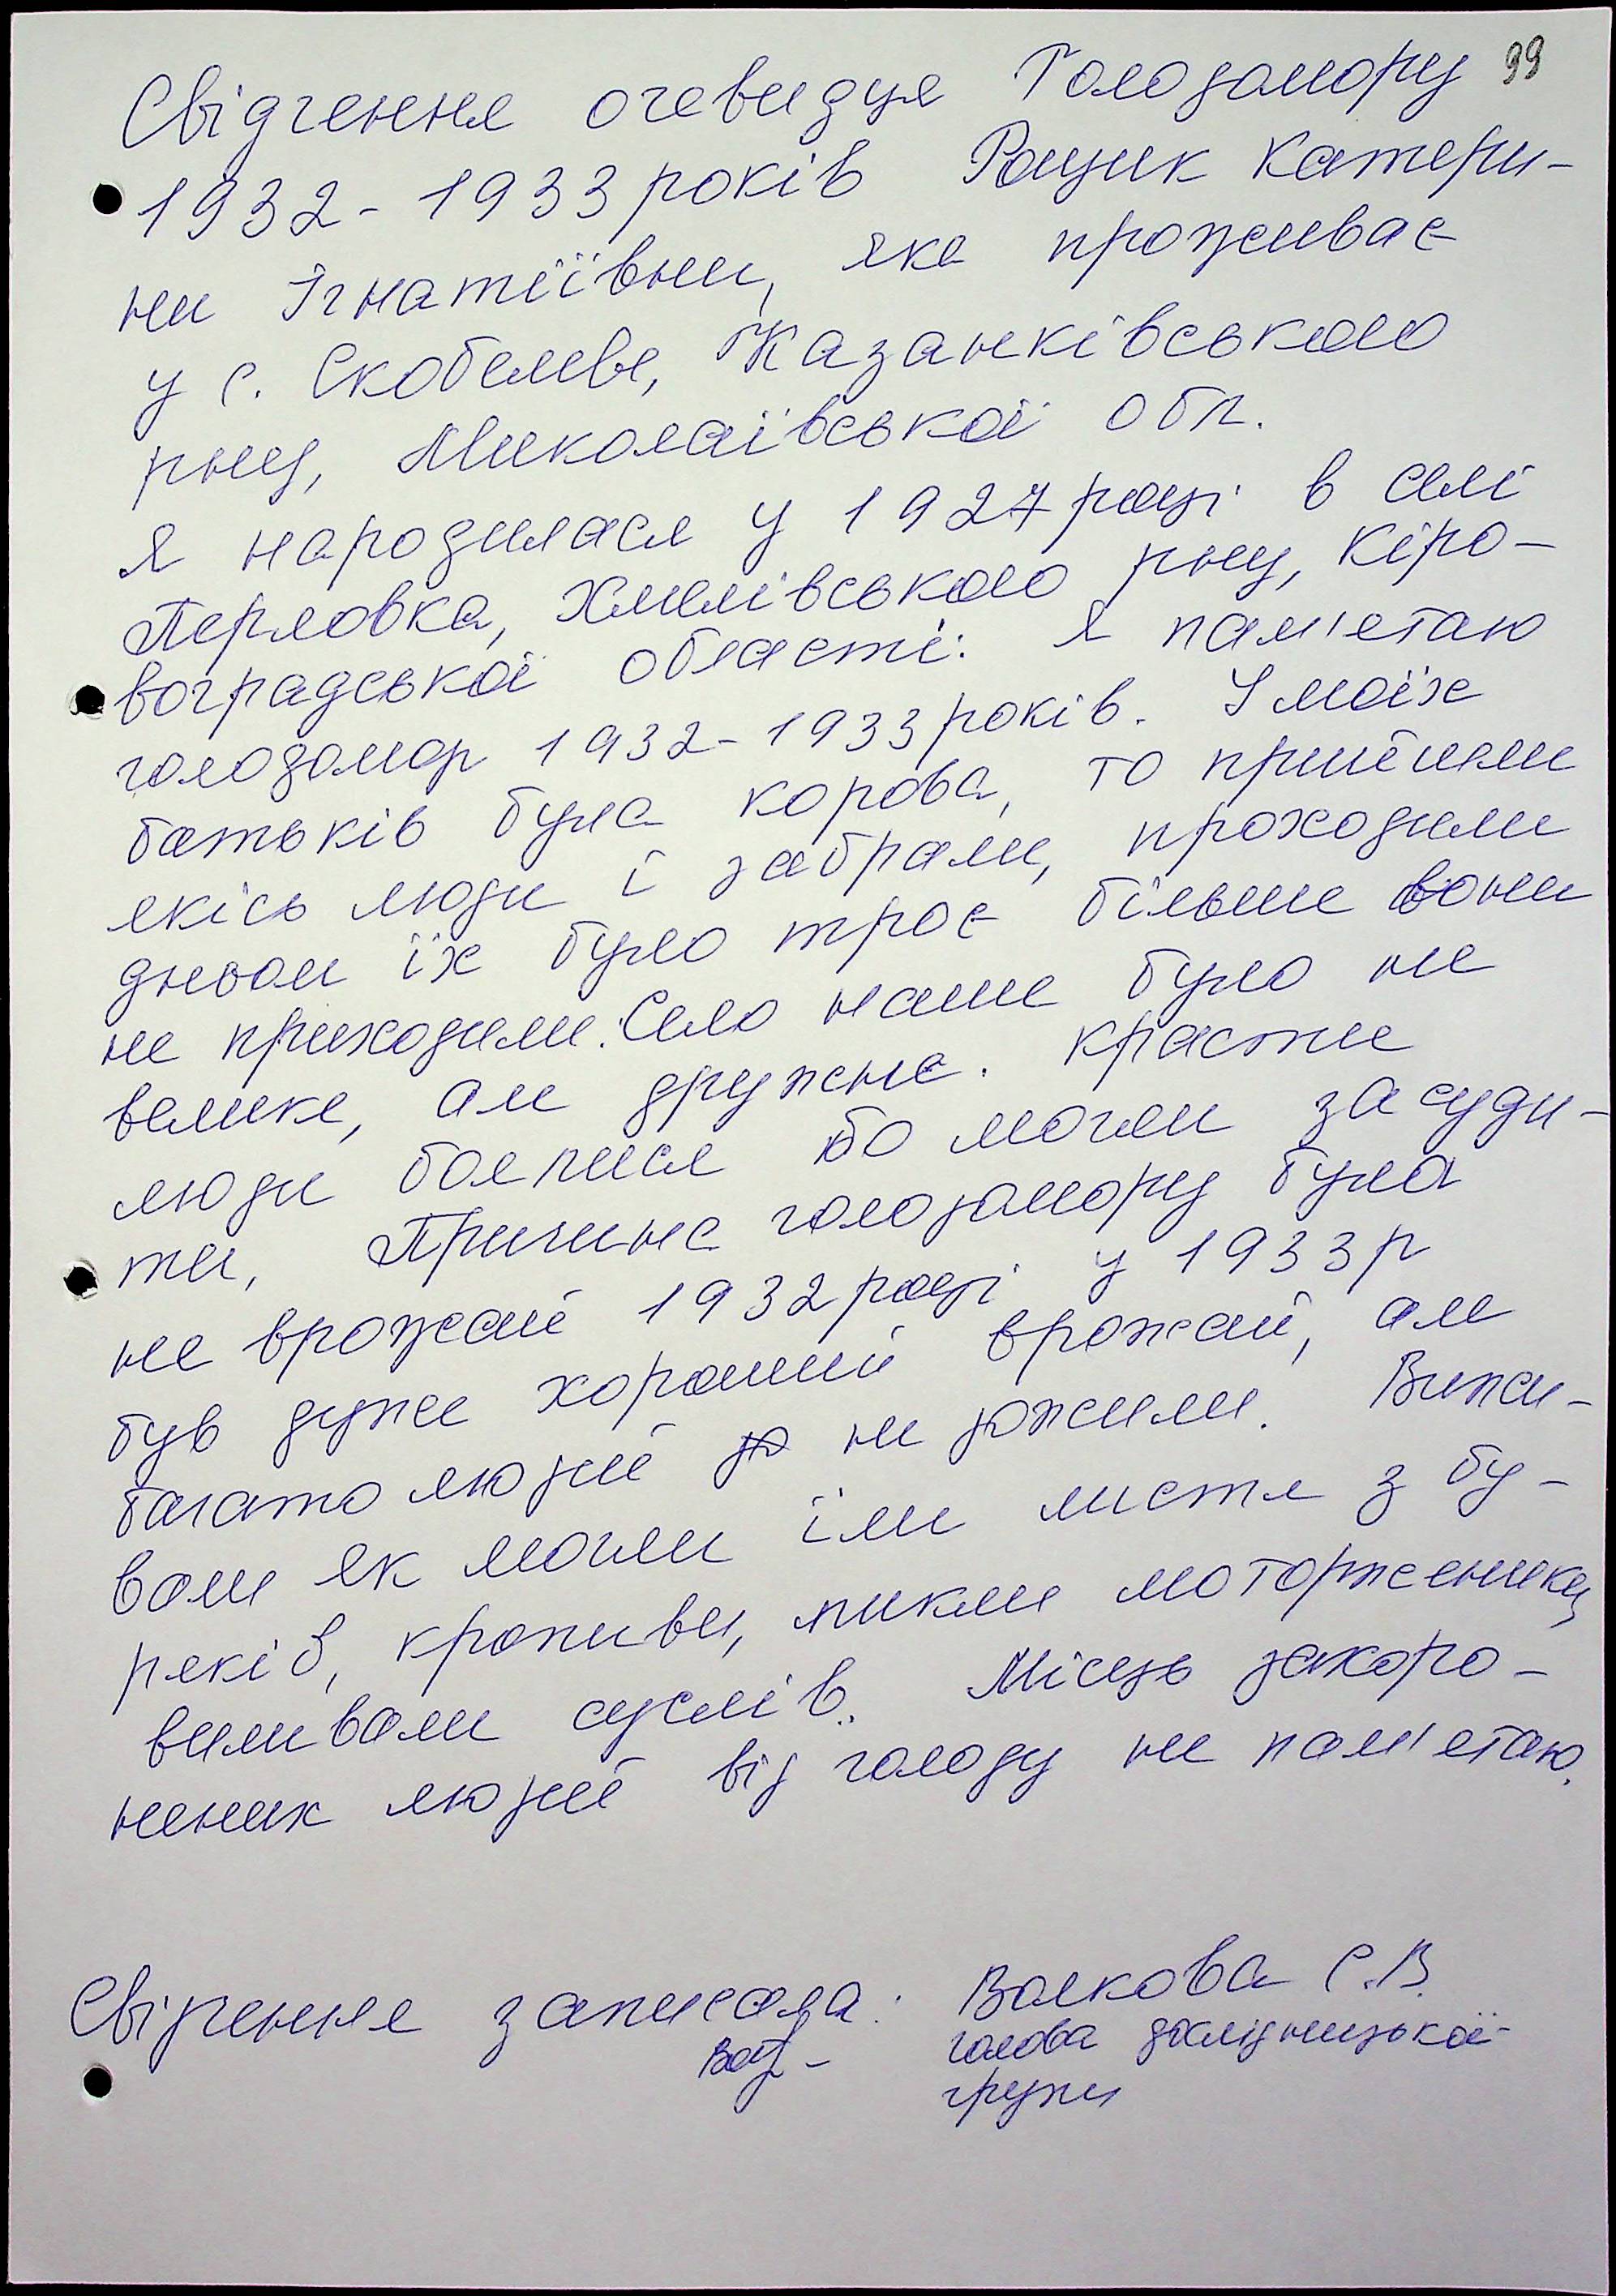 99
Свідчення очевидця Голодомору
1932-1933 років Рацик Катери-
ни Ігнатіївни, яка проживає
у с. Скобелеве, Казанківського
р-ну, Миколаївської обл.
Я народилася у 1927 році в селі
Перловка, Хмелівського р-ну, Кіро-
воградської області. Я пам'ятаю
голодомор 1932-1933 років. У моїх
батьків була корова, то прийшли
якісь люди і забрали, проходили
двом їх було троє більше вони
не приходили. Село наше було не
велике, але дружнє. Красти
люди боялися бо могли засуди-
ти, Причина голодомору була
не врожай 1932 році у 1933 р
був дуже хороший врожай, але
багато людей не дожили. Вижи-
вали як могли їли листя з бу-
ряків, кропиви, пикли моторженики,
виливали суслів. Місць захоро-
нених людей від голоду не пам'ятаю.
Свідчення записала: Волкова С.В.
голова дослідницької
групи